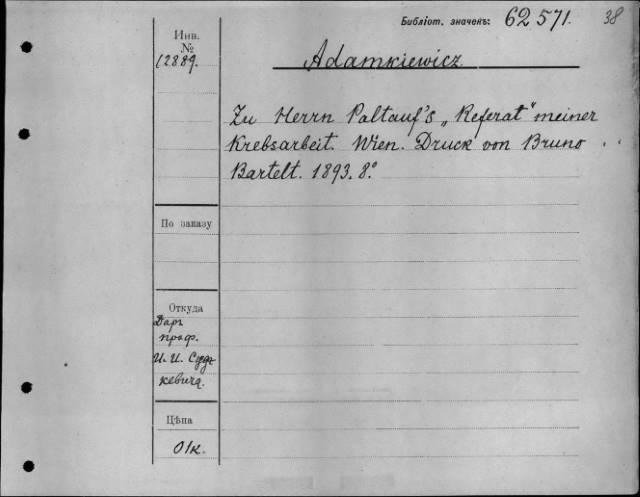 Библіот. значенъ: 62571. 38
Инв.
№
12889.
Adamkiewicz.
Zu Herrn Paltauf's „Referat“ meiner
Krebsarbeit. Wien. Druck von Bruno
Bartelt. 1893. 8.°
По заказу
Откуда
Даръ
проф.
И. И. Судъ
кевича.
Цѣна
01к.